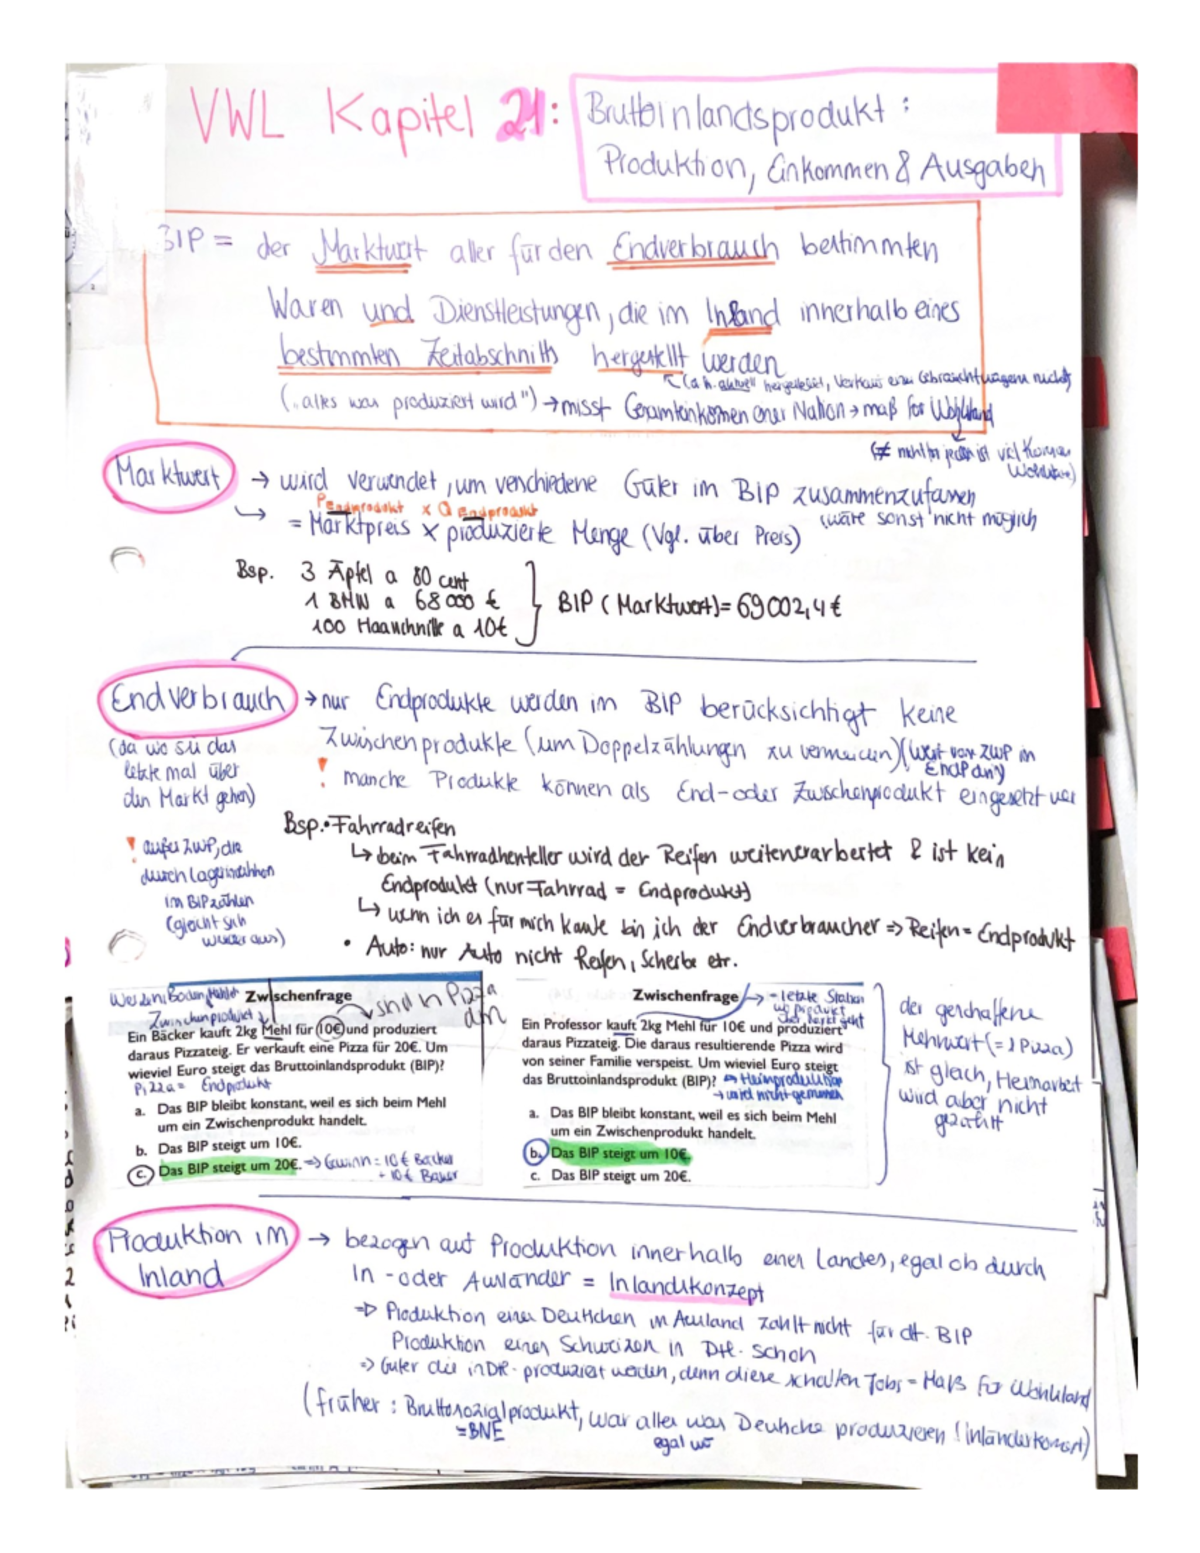 VWL Kapitel 21:
Bruttoinlandsprodukt:
Produktion, Einkommen & Ausgaben
BIP = der Marktwert aller für den Endverbrauch bestimmten
Waren und Dienstleistungen, die im Inland innerhalb eines
bestimmten Zeitabschnitts hergestellt werden
(d.h. aktuell hergestellt, Verkauf eines Gebrauchtwagens nicht)
("alles was produziert wird") → misst Gesamteinkommen einer Nation → maß für Wohlstand
(≠ mehr für jeden ist viel
Marktwert → wird verwendet, um verschiedene Güter im BIP zusammenzufassen
(wäre sonst nicht möglich)
P Endprodukt x Q Endprodukt
↳ = Marktpreis x produzierte Menge (Vgl. über Preis)
Bsp. 3 Äpfel a 80 cent
1 BMW a 68000 €
100 Haarschnitte a 10€
BIP (Marktwert) = 69002,4€
Endverbrauch → nur Endprodukte werden im BIP berücksichtigt keine
Zwischenprodukte (um Doppelzählungen zu vermeiden) (Wert von ZWP im
EndP drin)
! manche Produkte können als End- oder Zwischenprodukt eingesetzt wer
(da wo sie das
letzte mal über
den Markt gehen)
! außer ZWP, die
durch Lagereinnahmen
im BIP zählen
(gleicht sich
wieder aus)
Bsp. • Fahrradreifen
↳ beim Fahrradhersteller wird der Reifen weiterverarbeitet & ist kein
Endprodukt (nur Fahrrad = Endprodukt)
↳ wenn ich es für mich kaufe bin ich der Endverbraucher => Reifen = Endprodukt
• Auto: nur Auto nicht Reifen, Scheibe etc.
Zwischenfrage
→ sind in Pizza
drin
Zwischenprodukt ↓
Ein Bäcker kauft 2kg Mehl für 10€ und produziert
daraus Pizzateig. Er verkauft eine Pizza für 20€. Um
wieviel Euro steigt das Bruttoinlandsprodukt (BIP)?
Pizza = Endprodukt
a. Das BIP bleibt konstant, weil es sich beim Mehl
um ein Zwischenprodukt handelt.
b. Das BIP steigt um 10€.
c. Das BIP steigt um 20€. => Gewinn = 10€ Bäcker
+ 10€ Bauer
Zwischenfrage → = letzte Station
wo Produkt
über Markt geht
Ein Professor kauft 2kg Mehl für 10€ und produziert
daraus Pizzateig. Die daraus resultierende Pizza wird
von seiner Familie verspeist. Um wieviel Euro steigt
das Bruttoinlandsprodukt (BIP)? => Heimproduktion
→ wird nicht gemessen
a. Das BIP bleibt konstant, weil es sich beim Mehl
um ein Zwischenprodukt handelt.
b. Das BIP steigt um 10€.
c. Das BIP steigt um 20€.
der geschaffene
Mehrwert (= 1 Pizza)
ist gleich, Heimarbeit
wird aber nicht
gezählt
Produktion im
Inland
→ bezogen auf Produktion innerhalb eines Landes, egal ob durch
In- oder Ausländer = Inlandskonzept
=> Produktion eines Deutschen im Ausland zählt nicht für dt. BIP
Produktion eines Schweizers in Dtl. schon
=> Güter die in Dtl. produziert werden, denn diese schaffen Jobs = Maß für Wohlstand
(früher: Bruttosozialprodukt, war alles was Deutsche produzieren (inländerkonzept)
=BNE
egal wo